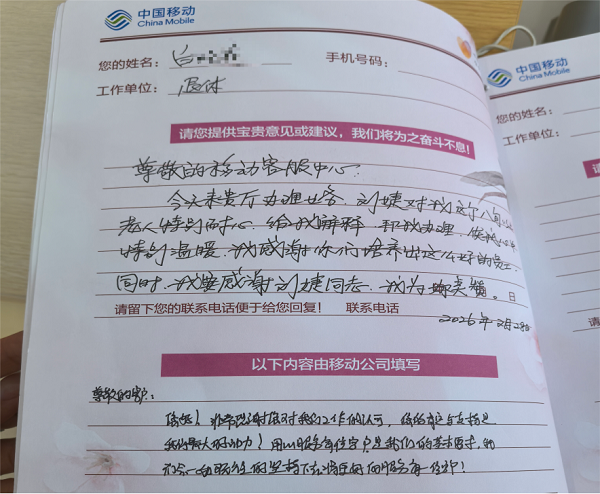 中国移动
China Mobile
您的姓名：白
手机号码：
工作单位：退休
请您提供宝贵意见或建议，我们将为之奋斗不息！
尊敬的移动客服中心：
今天来贵厅办理业务，刘婕对我这个八旬
老人特别耐心，给我解释，帮我办理，使我心中
特别温暖。我感谢你们培养出这么好的员工，
同时，我要感谢刘婕同志，我为她点赞。
请留下您的联系电话便于给您回复！ 联系电话
2026年2月28日
以下内容由移动公司填写
尊敬的客户：
您好！非常感谢您对我们工作的认可，您的肯定与支持是
我们最大的动力！用心服务每位客户是我们的基本要求，我
们会一如既往的坚持下去，将更好的服务每一位客户！
中国移动
China Mobile
您的姓名：
工作单位：